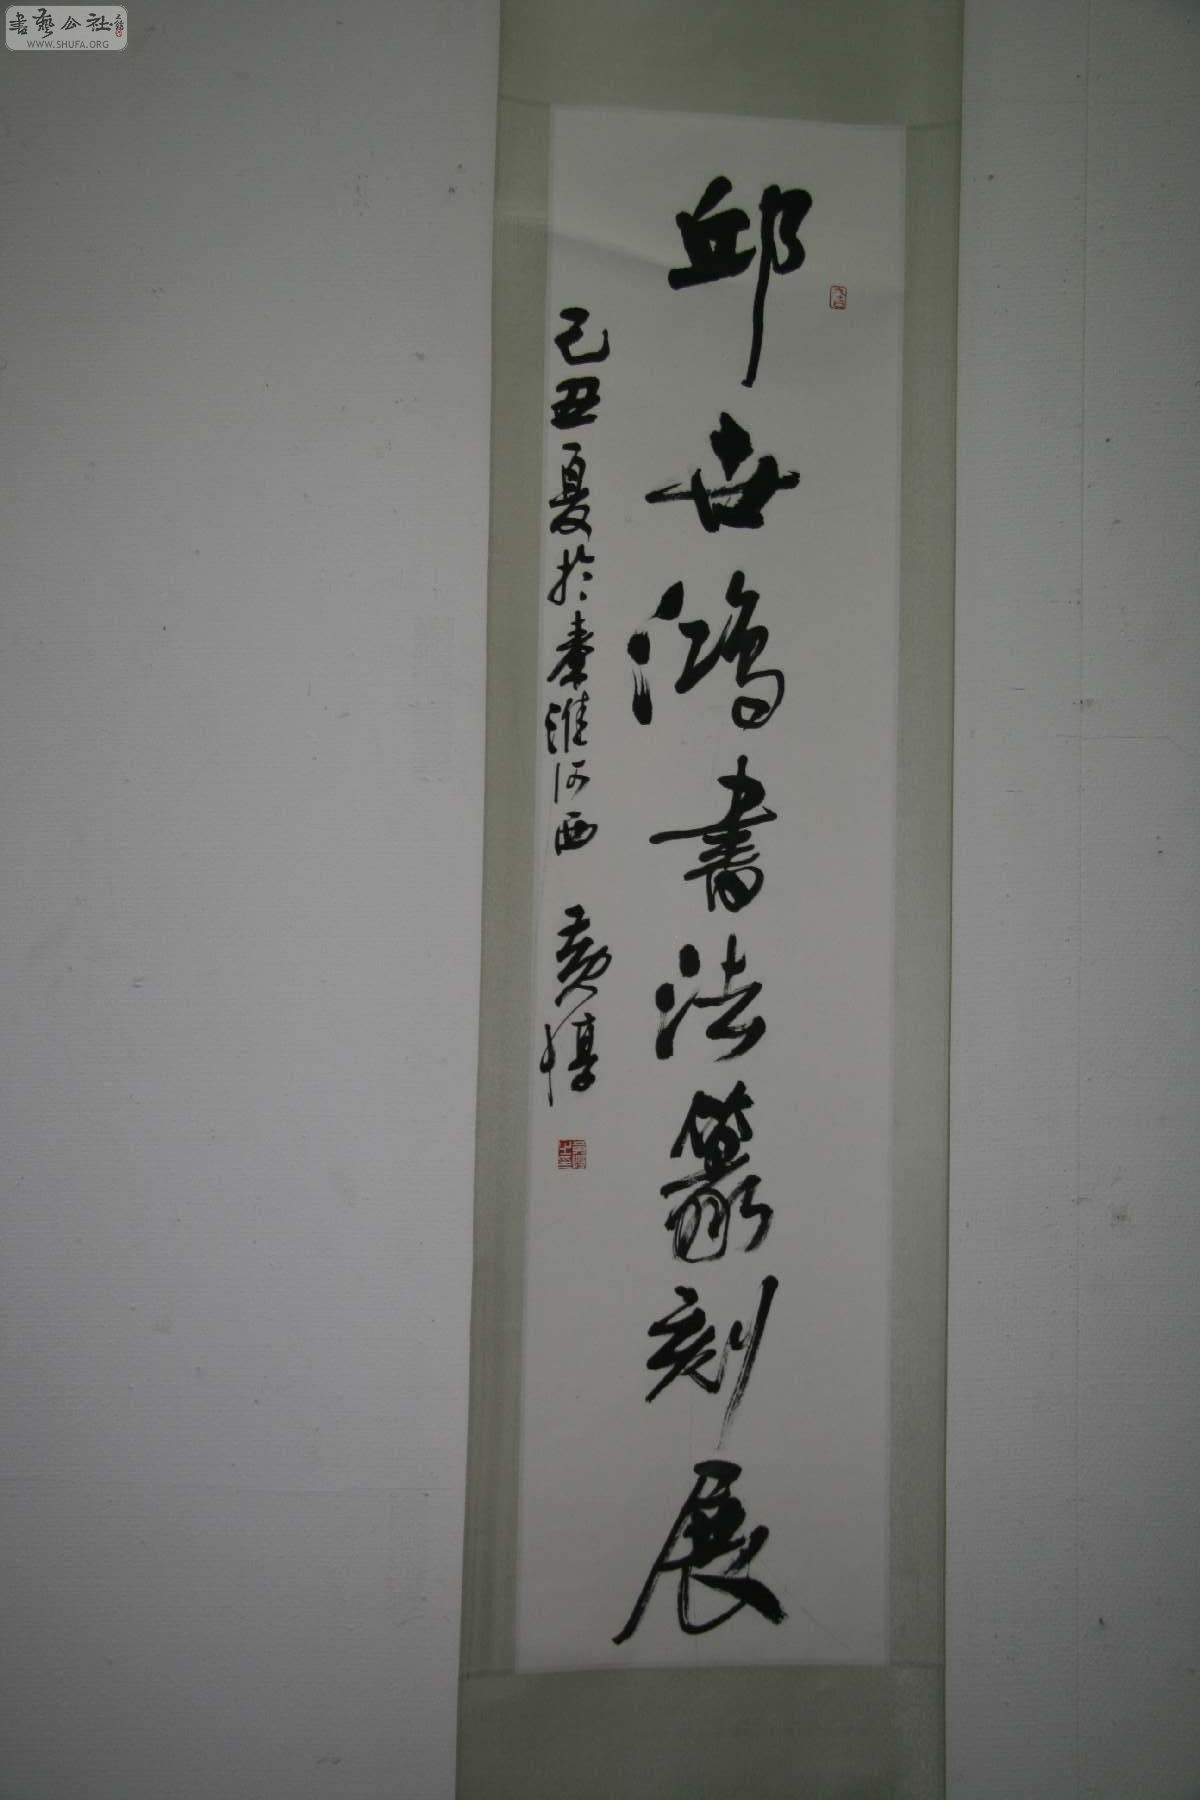 書藝公社
WWW.SHUFA.ORG
邱世鴻書法篆刻展
己丑夏於秦淮河西 黄惇